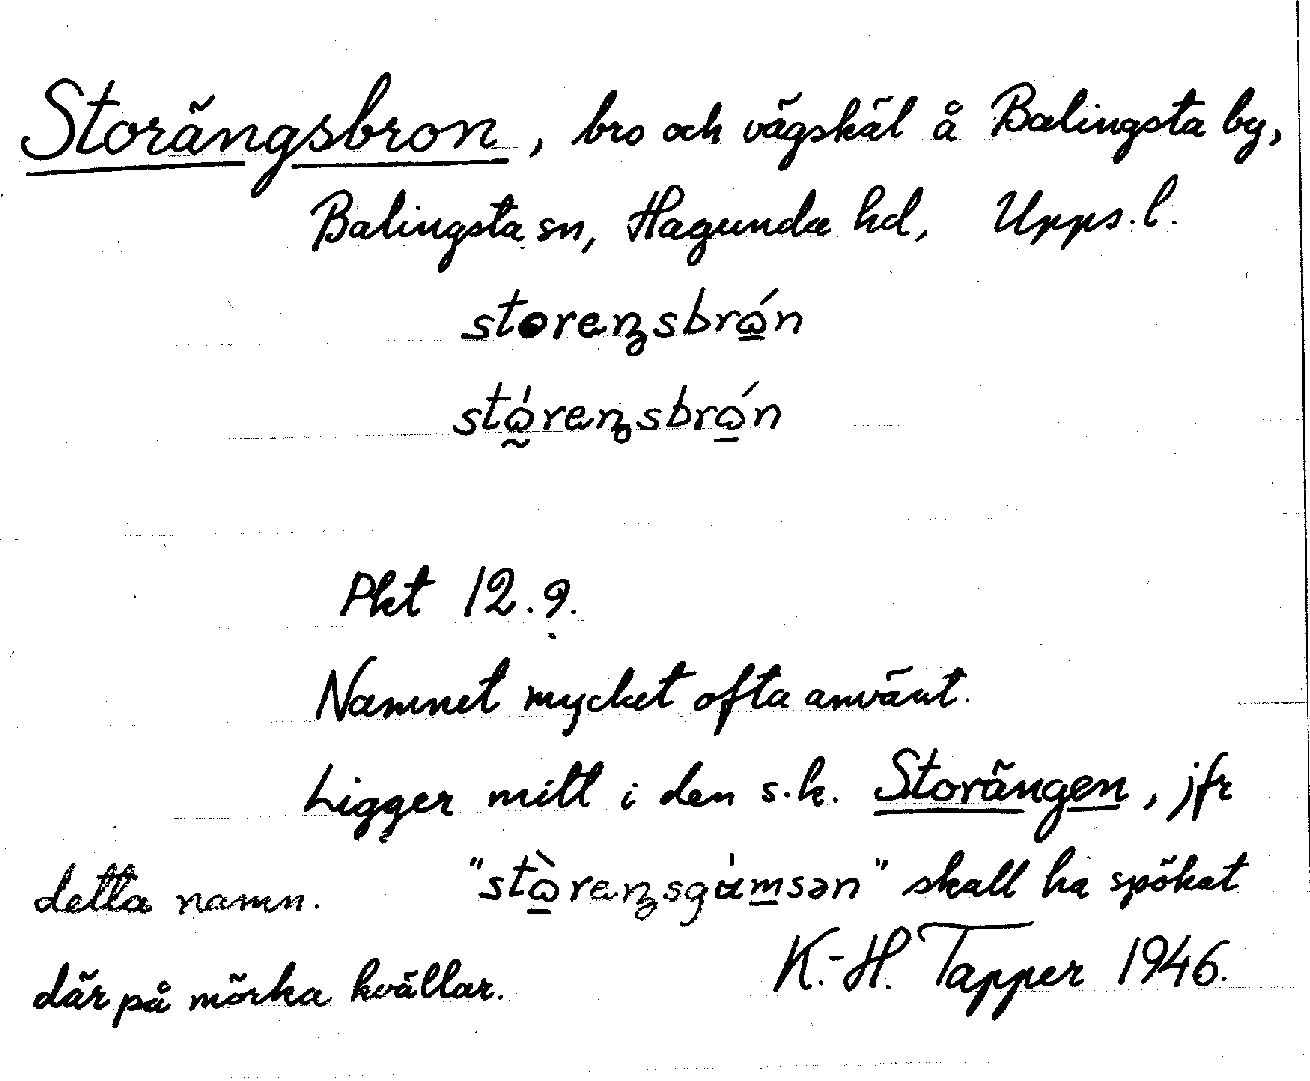 Storängsbron, bro och vägskäl å Balingsta by,
Balingsta sn, Hagunda hd, Upps. l.
storeŋsbrώ̱n
stὼ̰reŋsbrώ̱n
Pkt 12.9.
Namnet mycket ofta använt.
Ligger mitt i den s.k. Storängen, jfr
detta namn. "stὼ̱reŋsgàm̱sən" skall ha spökat
där på mörka kvällar. K.-H. Tapper 1946.